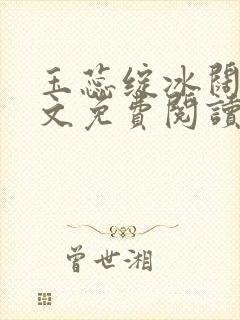 玉蕊绽冰阔
文免費閱讀
曾世湘